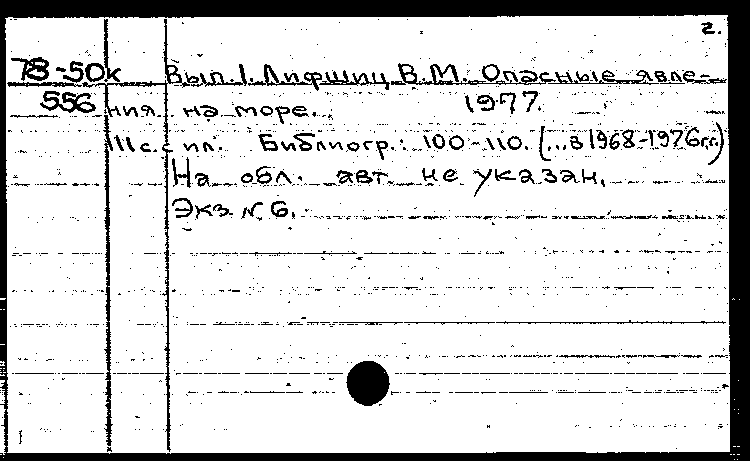 2.
78-50к Вып. 1. Лифшиц В.М. Опасные явле-
556 ния на море. 1977.
111 с. с ил. Библиогр.: 100-110. (...в 1968-1976 гг.)
На обл. авт. не указан.
Экз. № 6.